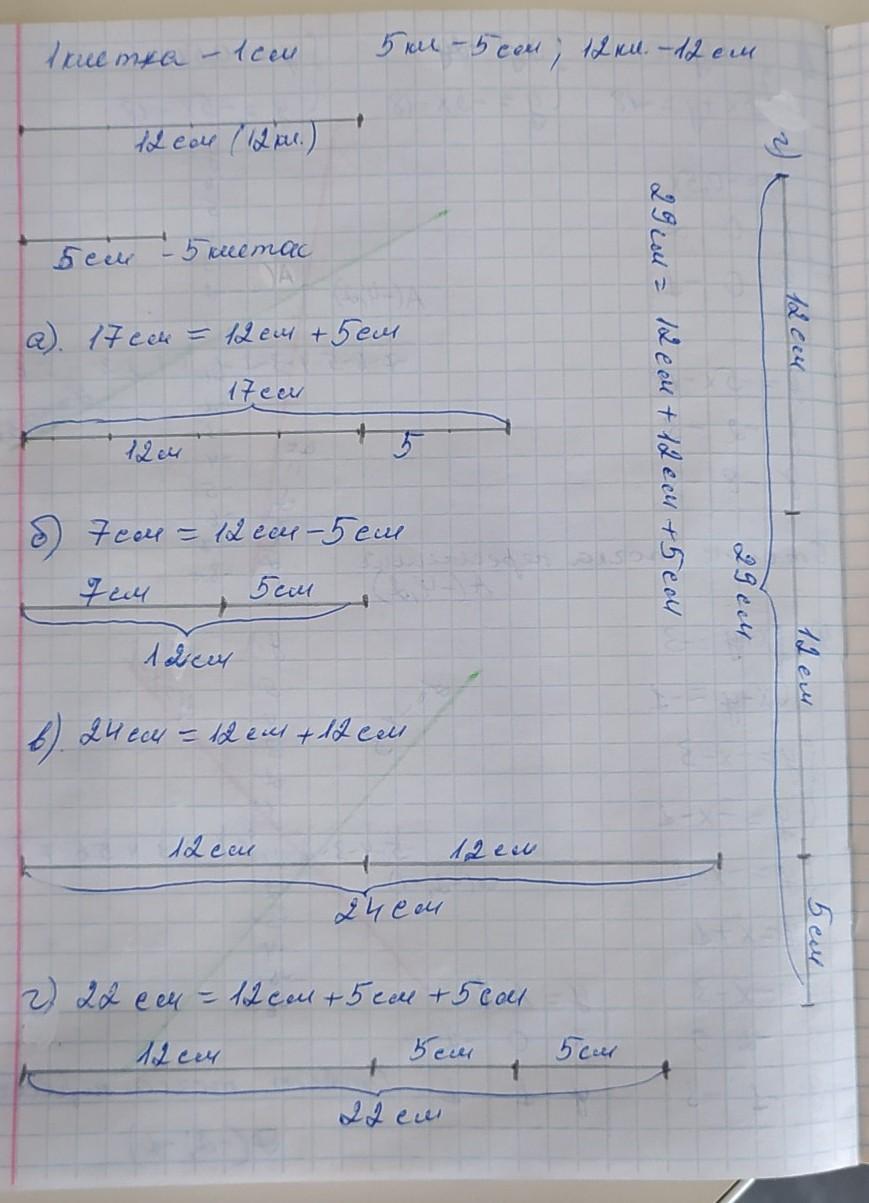 1клетка - 1см 5кл - 5см; 12кл. - 12см
12см (12кл.)
5см - 5клетас
а). 17см = 12см + 5см
17см
12м 5
б) 7см = 12см - 5см
7см 5см
12см
в). 24см = 12см + 12см
12см 12см
24см
г) 22см = 12см + 5см + 5см
12см 5см 5см
22см
г)
29см = 12см + 12см + 5см
29см
12см 12см 5см